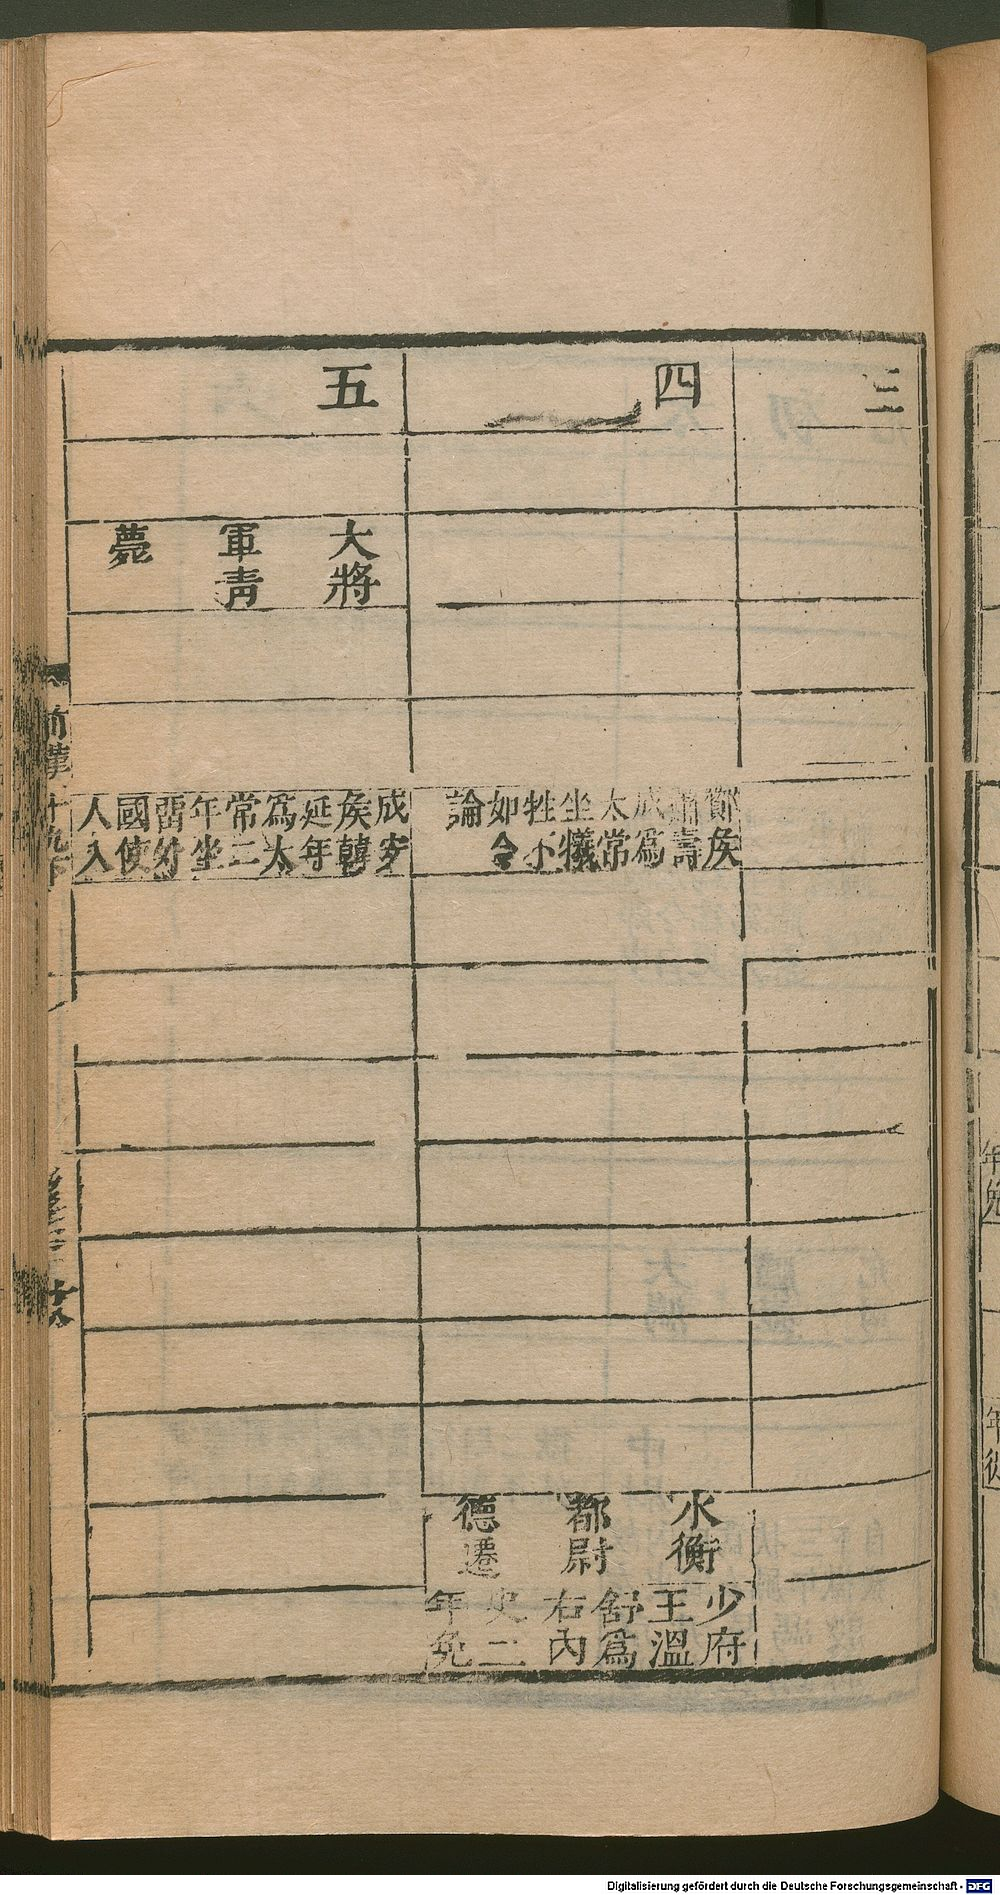 三
四
鄼矦
蕭壽
成爲
太常
坐犧
牲不
如令
論
水衡
都尉
德遷
少府
王溫
舒爲
右內
史二
年免
五
大將
軍靑
薨
成安
矦韓
延年
爲太
常二
年坐
畱外
國使
人入
前漢十九下
Digitalisierung gefördert durch die Deutsche Forschungsgemeinschaft - DFG